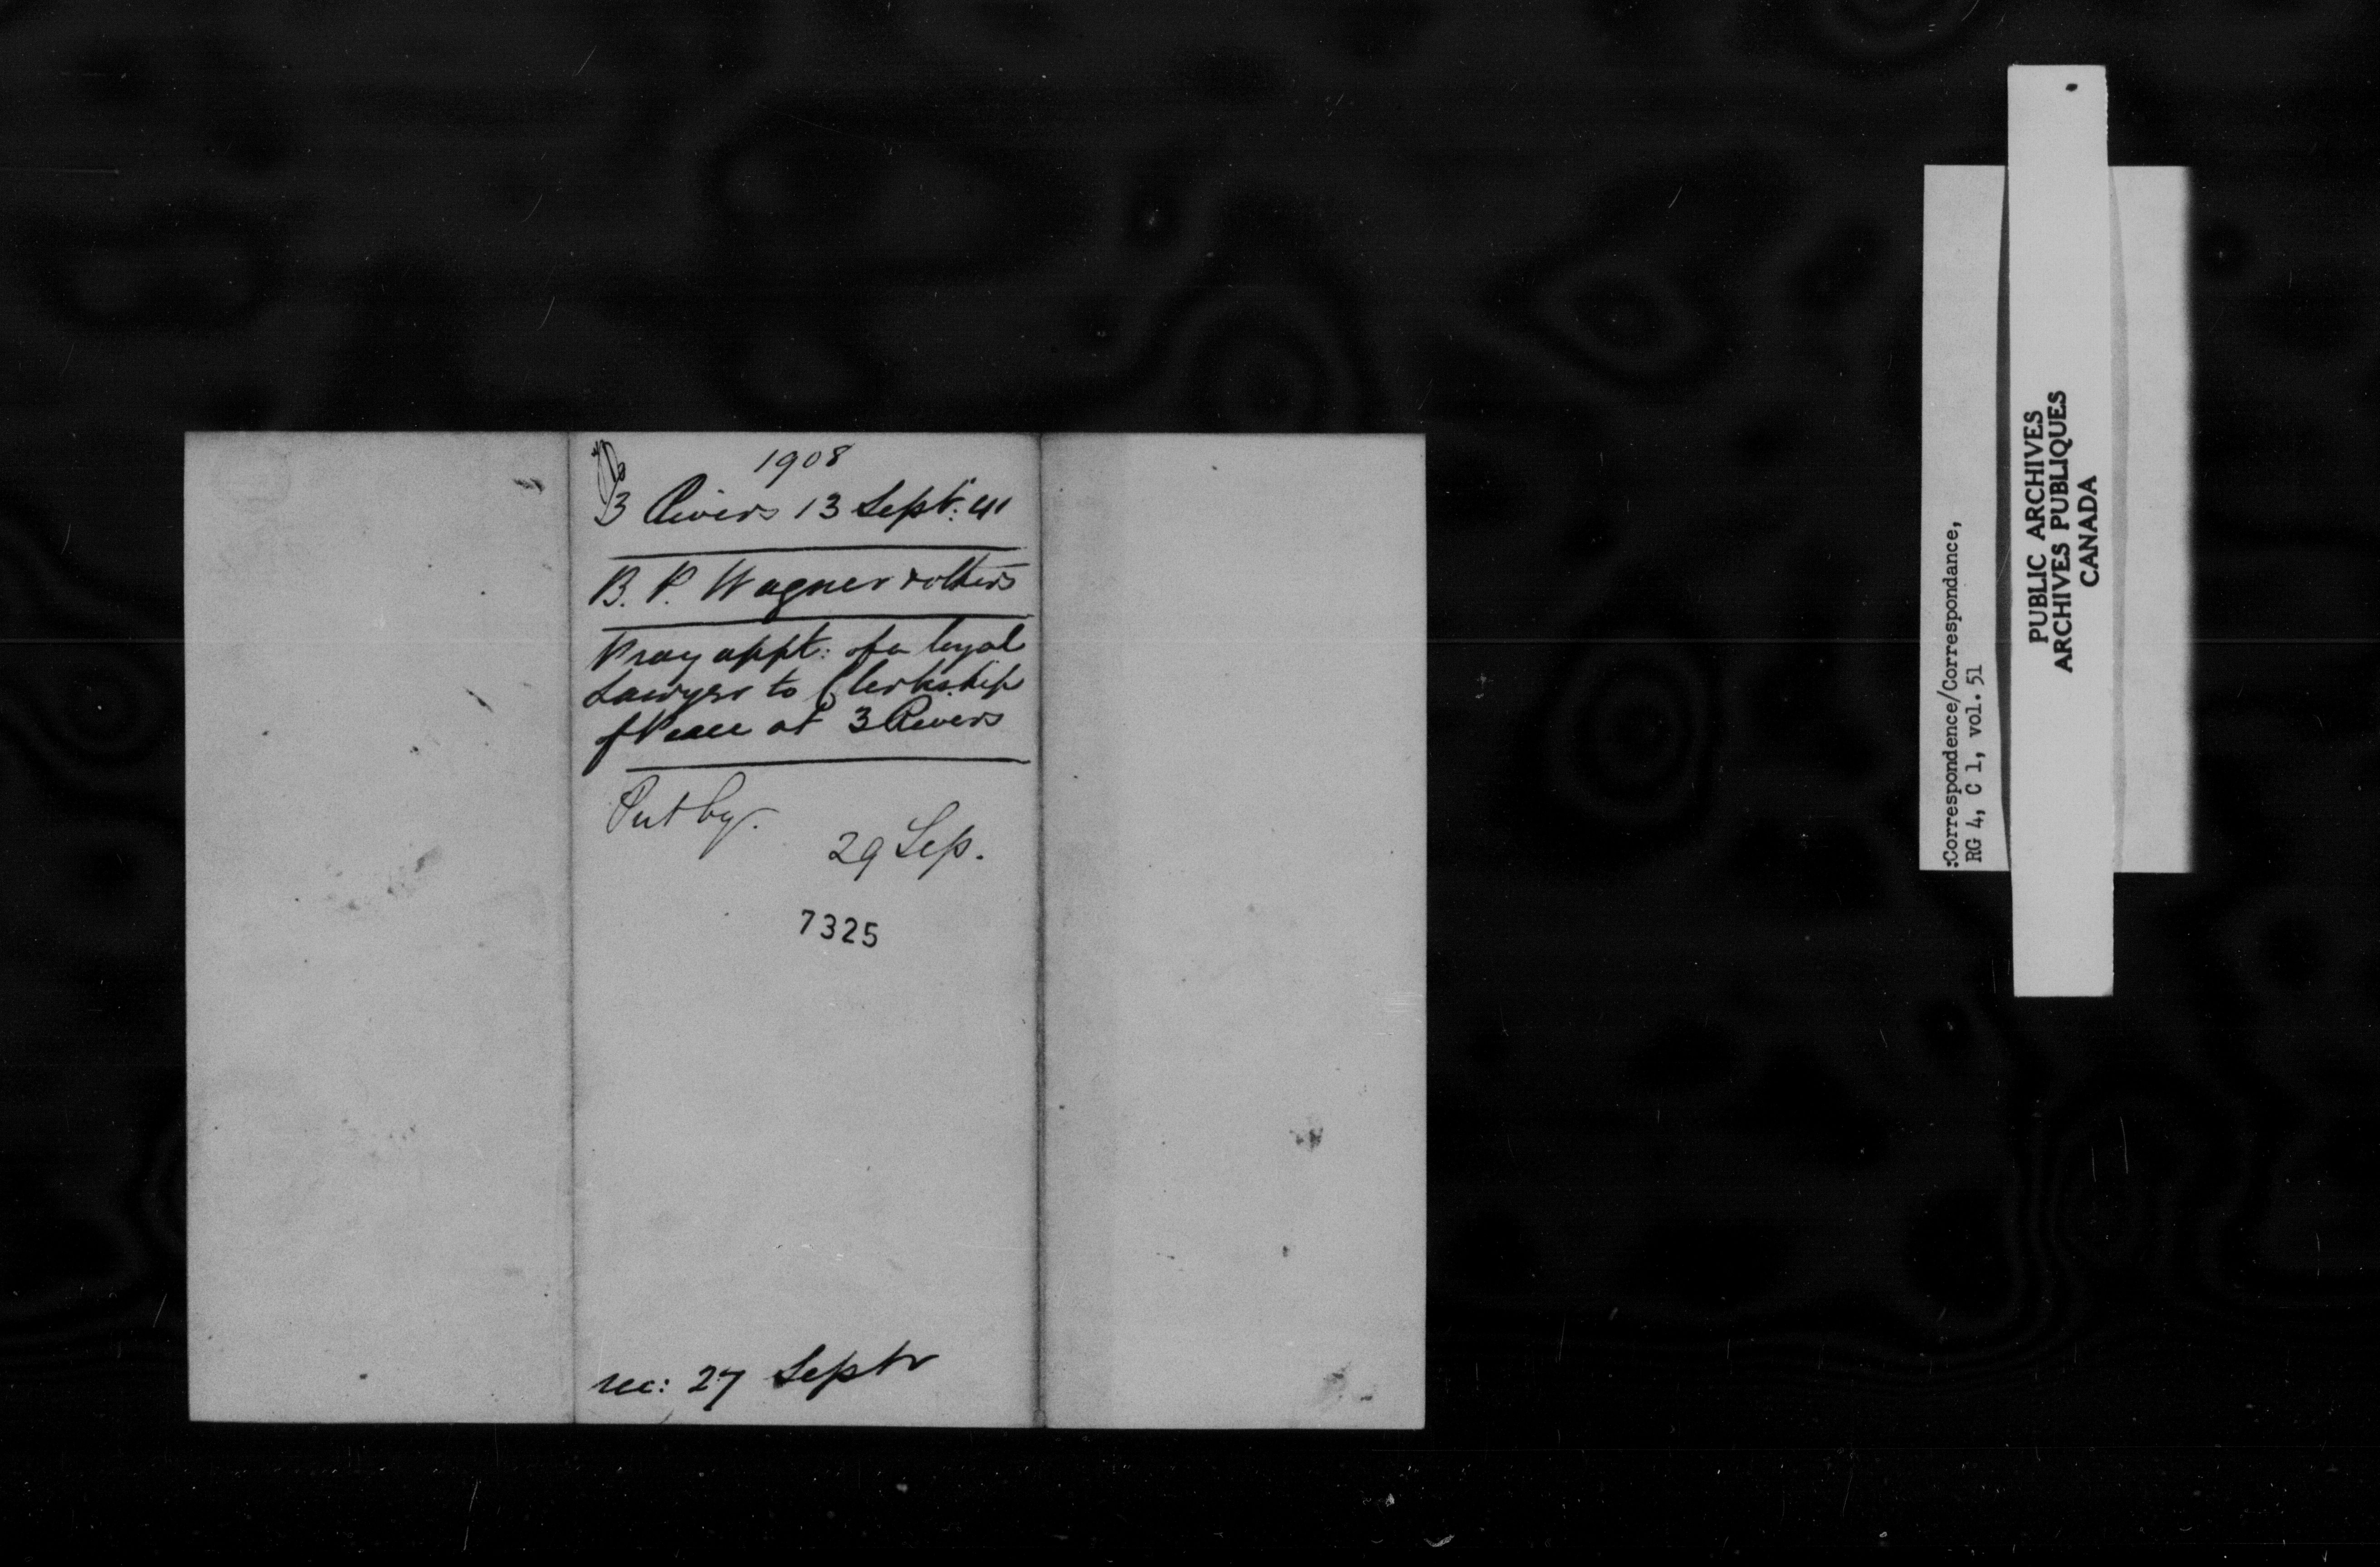 1908
3 Rivers 13 Sept: 41
B. P. Wagner & others
Pray appt: of a loyal
Lawyer to Clerkship
of Peace at 3 Rivers
Put by.
29 Sep.
7325
rec: 27 Septr
:Correspondence/Correspondance,
RG 4, C 1, vol. 51
PUBLIC ARCHIVES
ARCHIVES PUBLIQUES
CANADA